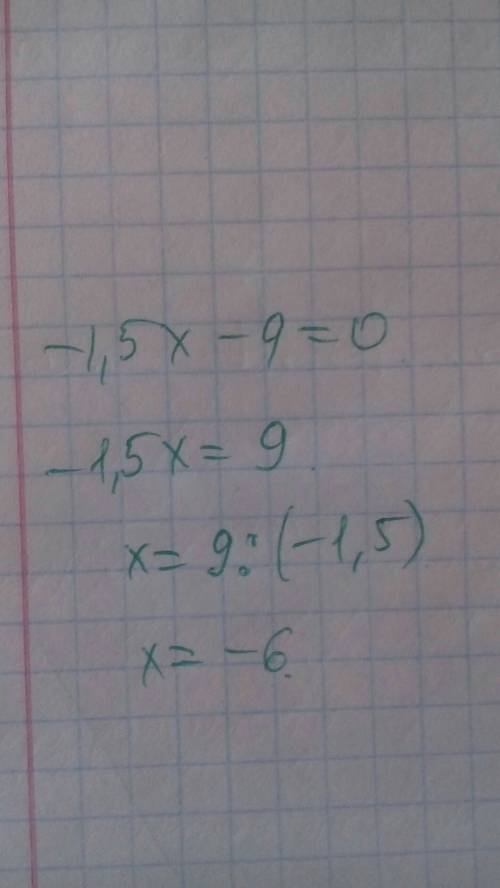 -1,5x - 9 = 0
-1,5x = 9
x = 9 : (-1,5)
x = -6.